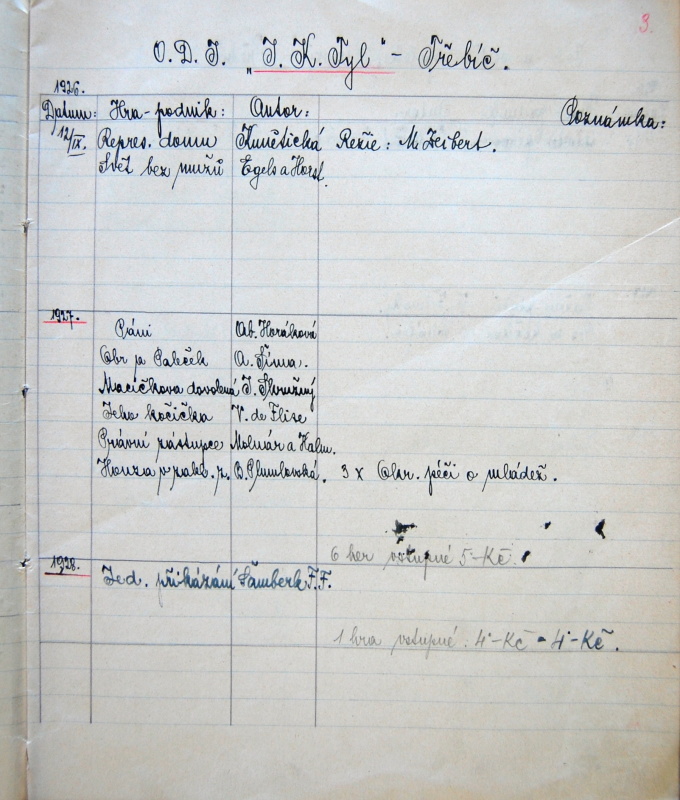 3.
O. D. J. „J. K. Tyl“ - Třebíč.
1926.
Datum: Hra-podnik: Autor: Poznámka:
12/IX. Repres. domu Kunětická Režie: M. Zeibert.
Svět bez mužů Egels a Horst.
1927.
Páni Ab. Horáková
Obr p. Paleček A. Šíma.
Macíčkova dovolená J. Skružný
Jeho kočička V. de Flise
Právní zástupce Molnár a Halm.
Honza v zakl. z. B. Plumlovská. 3 x Okr. péči o mládež.
6 her vstupné 5-Kč.
1928.
Jed. přikázání Šamberk F. F.
1 hra vstupné. 4·-Kč = 4·-Kč.